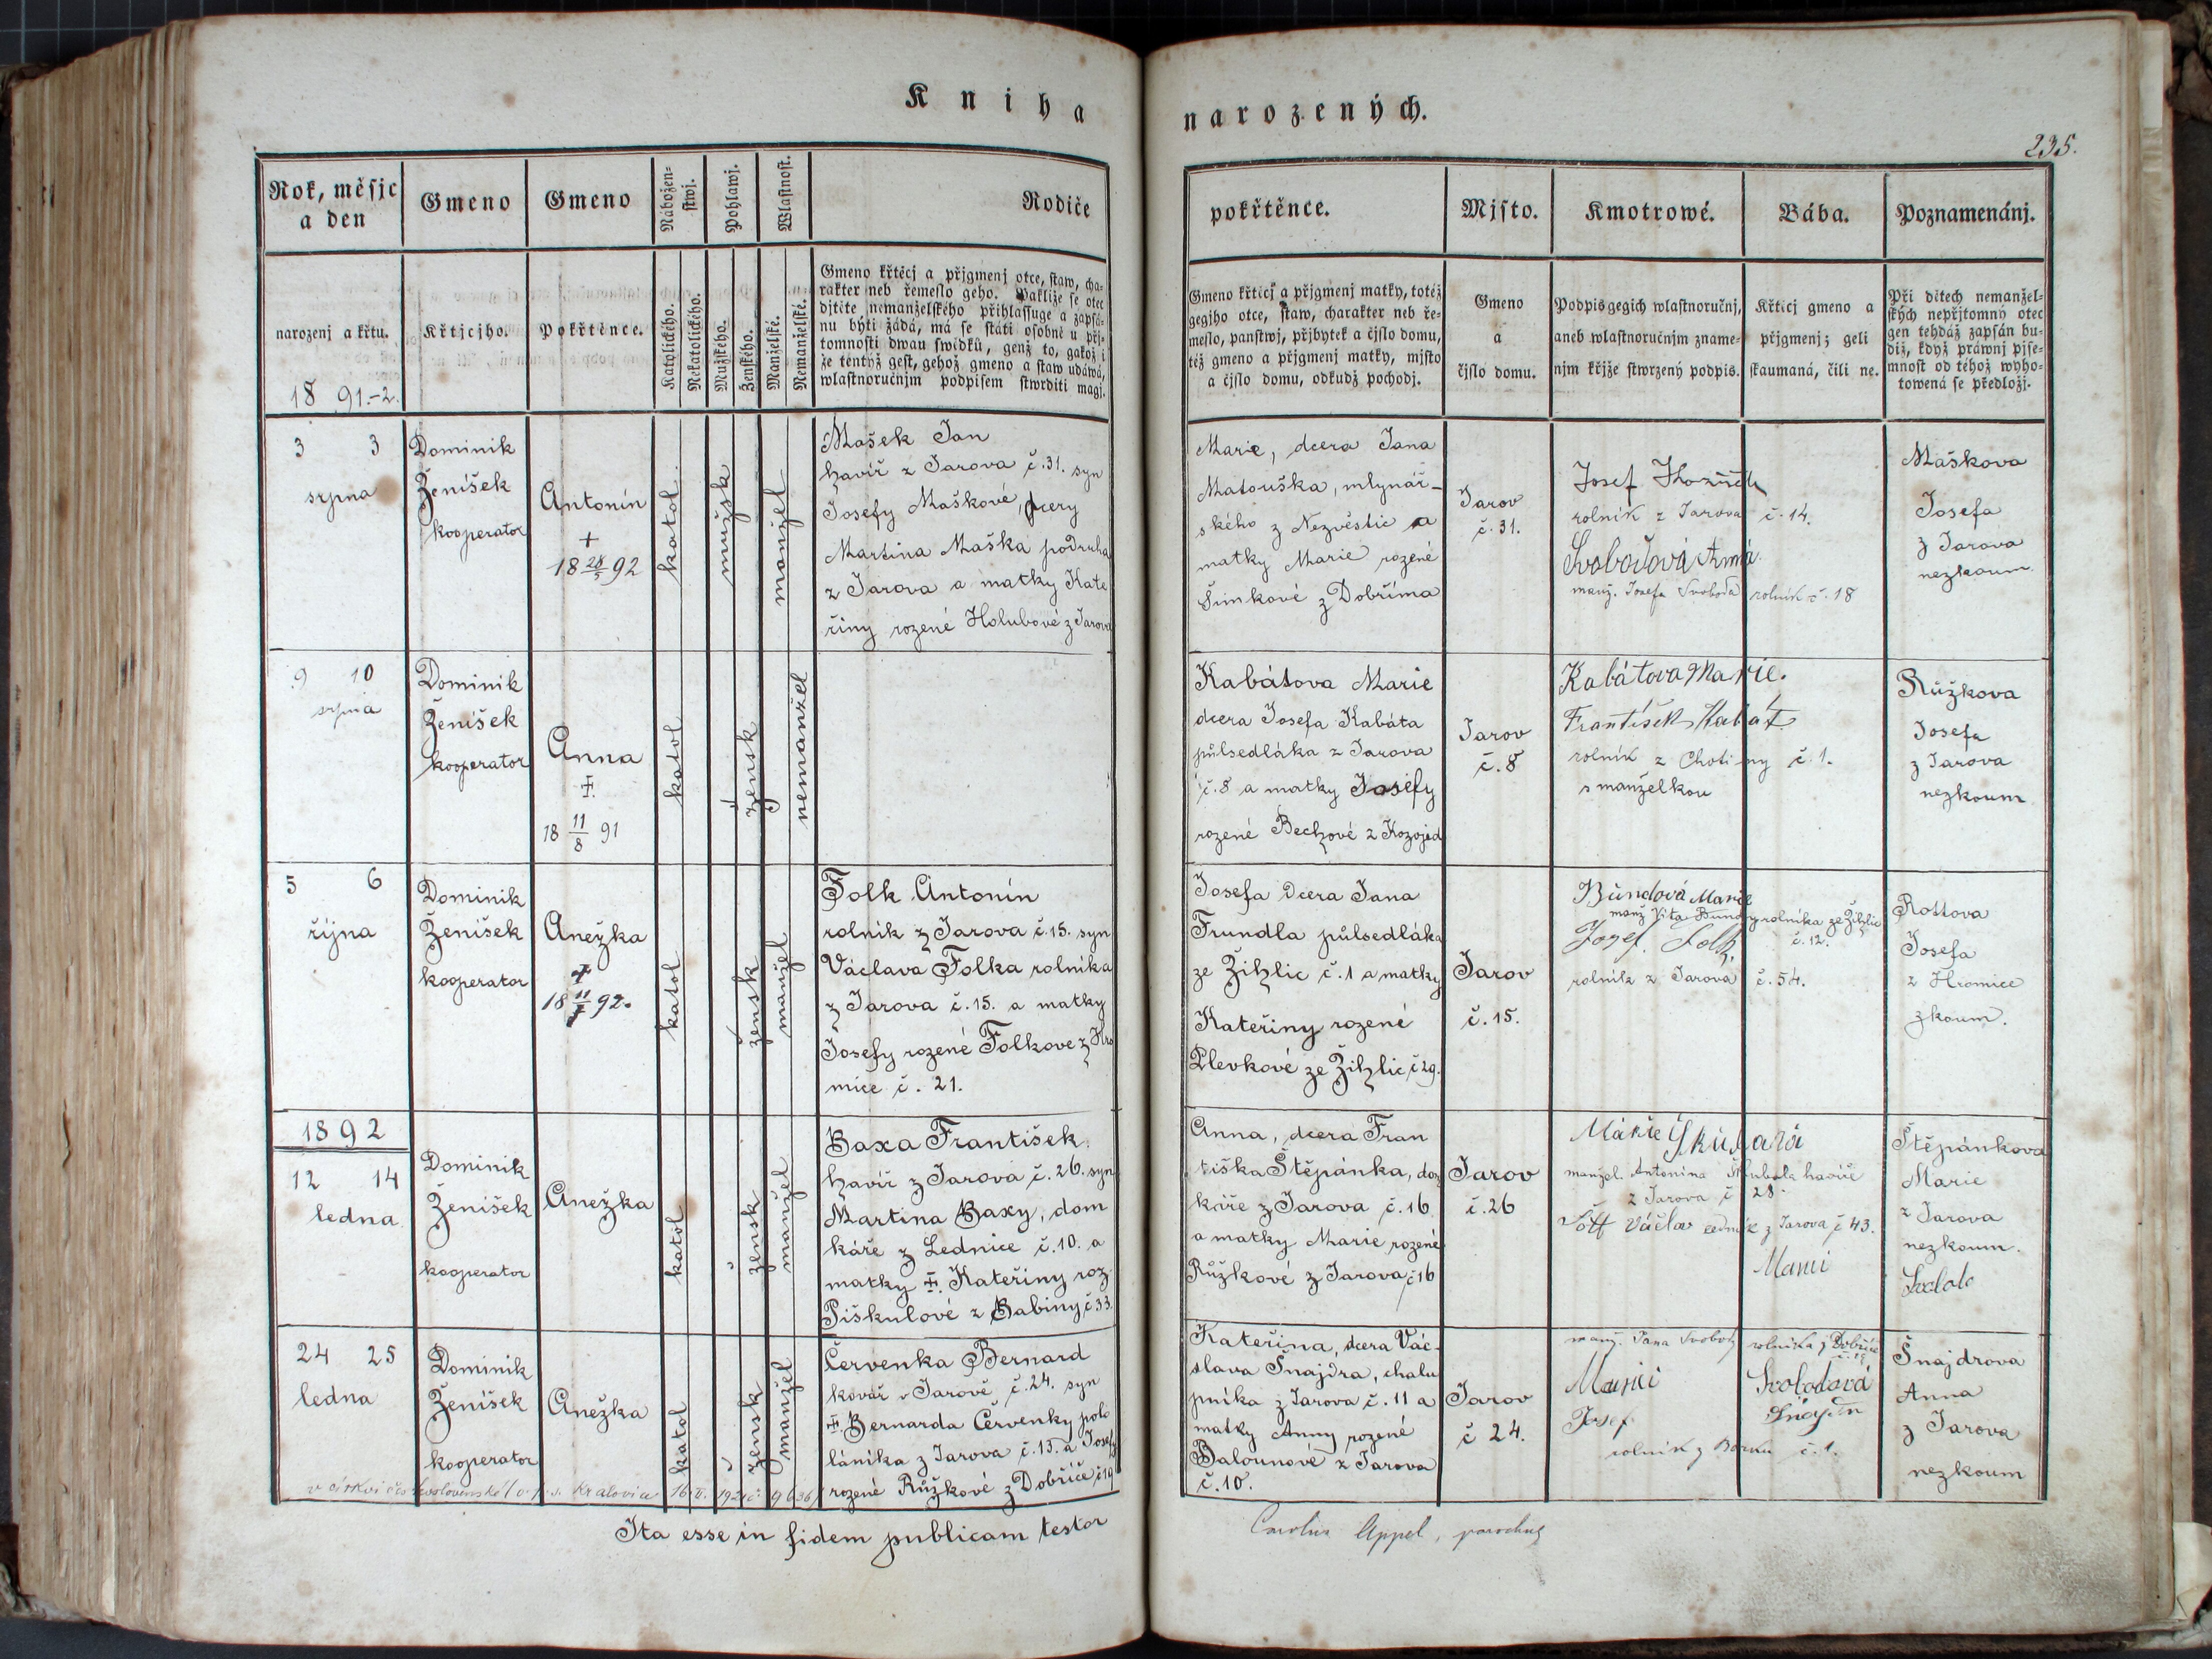 Kniha
narozených.
235.
Rok, měsjc
a den
Gmeno
Gmeno
Nábožen-
stwj.
Pohlawj.
Wlastnost.
Rodiče
pokřtěnce.
Mjsto.
Kmotrowé.
Bába.
Poznamenánj.
narozenj a křtu.
18 91.-2.
Křtjcjho.
Pokřtěnce.
Katolického.
Nekatolického.
Mužského.
Ženského.
Manželské.
Nemanželské.
Gmeno křtěcj a přjgmenj otce, staw, cha-
rakter neb řemeslo geho. Pakliže se otec
djtěte nemanželského přihlassuge a zapsá-
nu býti žádá, má se státi osobně u přj-
tomnosti dwau swědků, genž to, gakož i
že tentýž gest, gehož gmeno a staw udáwá,
wlastnoručnjm podpisem stwrditi magj.
Gmeno křticj a přjgmenj matky, totéž
gegjho otce, staw, charakter neb ře-
meslo, panstwj, přjbytek a čjslo domu,
též gmeno a přjgmenj matky, mjsto
a čjslo domu, odkudž pochodj.
Gmeno
a
čjslo domu.
Podpis gegich wlastnoručnj,
aneb wlastnoručnjm zname-
njm křjže stwrzený podpis.
Křticj gmeno a
přjgmenj; geli
skaumaná, čili ne.
Při dětech nemanžel-
ských nepřjtomný otec
gen tehdáž zapsán bu-
diž, když práwnj pjse-
mnost od téhož wyho-
towená se předložj.
3 3
srpna
Dominik
Ženíšek
kooperator
Antonín
+
18 28/5 92
katol.
mužsk
manžel
Mašek Jan
havíř z Jarova č. 31. syn
Josefy Maškové, dcery
Martina Maška podruha
z Jarova a matky Kate
řiny rozené Holubové z Jarova
Marie, dcera Jana
Matouška, mlynář-
ského z Nezvěstic a
matky Marie rozené
Šimkové z Dobříma
Jarov
č. 31.
Josef
rolník z Jarova č. 14.
Svobodová Anna
manž. Josefa Svoboda rolník č. 18
Maškova
Josefa
z Jarova
nezkoum.
9 10
srpna
Dominik
Ženíšek
kooperator
Anna
†.
18 11/8 91
katol
žensk
nemanžel
Kabátova Marie
dcera Josefa Kabáta
půlsedláka z Jarova
č. 8 a matky Josefy
rozené Bechové z Kozojed
Jarov
č. 8
Kabátova Marie.
František Kabát
rolník z Chotiny č. 1.
s manželkou
Růžkova
Josefa
z Jarova
nezkoum
5 6
října
Dominik
Ženíšek
kooperator
Anežka
+
katol
žensk
manžel
Folk Antonín
rolník z Jarova č. 15. syn
Václava Folka rolníka
z Jarova č. 15. a matky
Josefy rozené Folkove z Hro
mice č. 21.
Josefa dcera Jana
Trundla půlsedláka
ze Žihlic č. 1 a matky
Kateřiny rozené
Plevkové ze Žihlic č 29.
Jarov
č. 15.
Bundová Marie
manž Víta Bundy rolníka ze Žihlic
č. 12.
Josef Folk
rolník z Jarova č. 54.
Rottova
Josefa
z Hromice
zkoum.
1892
12 14
ledna.
Dominik
Ženíšek
kooperator
Anežka
katol
žensk
manžel
Baxa František
havíř z Jarova č. 26. syn
Martina Baxy, dom
káře z Lednice č. 10. a
matky †. Kateřiny roz
Piškulové z Babiny č. 33.
Anna, dcera Fran
tiška Štěpánka, dom
káře z Jarova č. 16
a matky Marie rozené
Růžkové z Jarova č 16
Jarov
č. 26
Marie
manžel. Antonína havíře
z Jarova č 28.
Václav z Jarova č 43.
Štěpánkova
Marie
z Jarova
nezkoum.
24 25
ledna
Dominik
Ženíšek
kooperator
Anežka
katol
žensk
manžel
Červenka Bernard
kovář v Jarově č. 24. syn
†. Bernarda Červenky polo
láníka z Jarova č. 13. a Josefy
rozené Růžkové z Dobříče č 19
Kateřina, dcera Vác-
slava Šnajdra, chalu
pníka z Jarova č. 11 a
matky Anny rozené
Balounové z Jarova
č. 10.
Jarov
č 24.
manž. Jana Svobody rolníka z Dobříče
Svobodová
Josef Šnajdr
rolník z č. 1.
Šnajdrova
Anna
z Jarova
nezkoum
Kralovice
Ita esse in fidem publicam testor
Carolus Appel, parochus